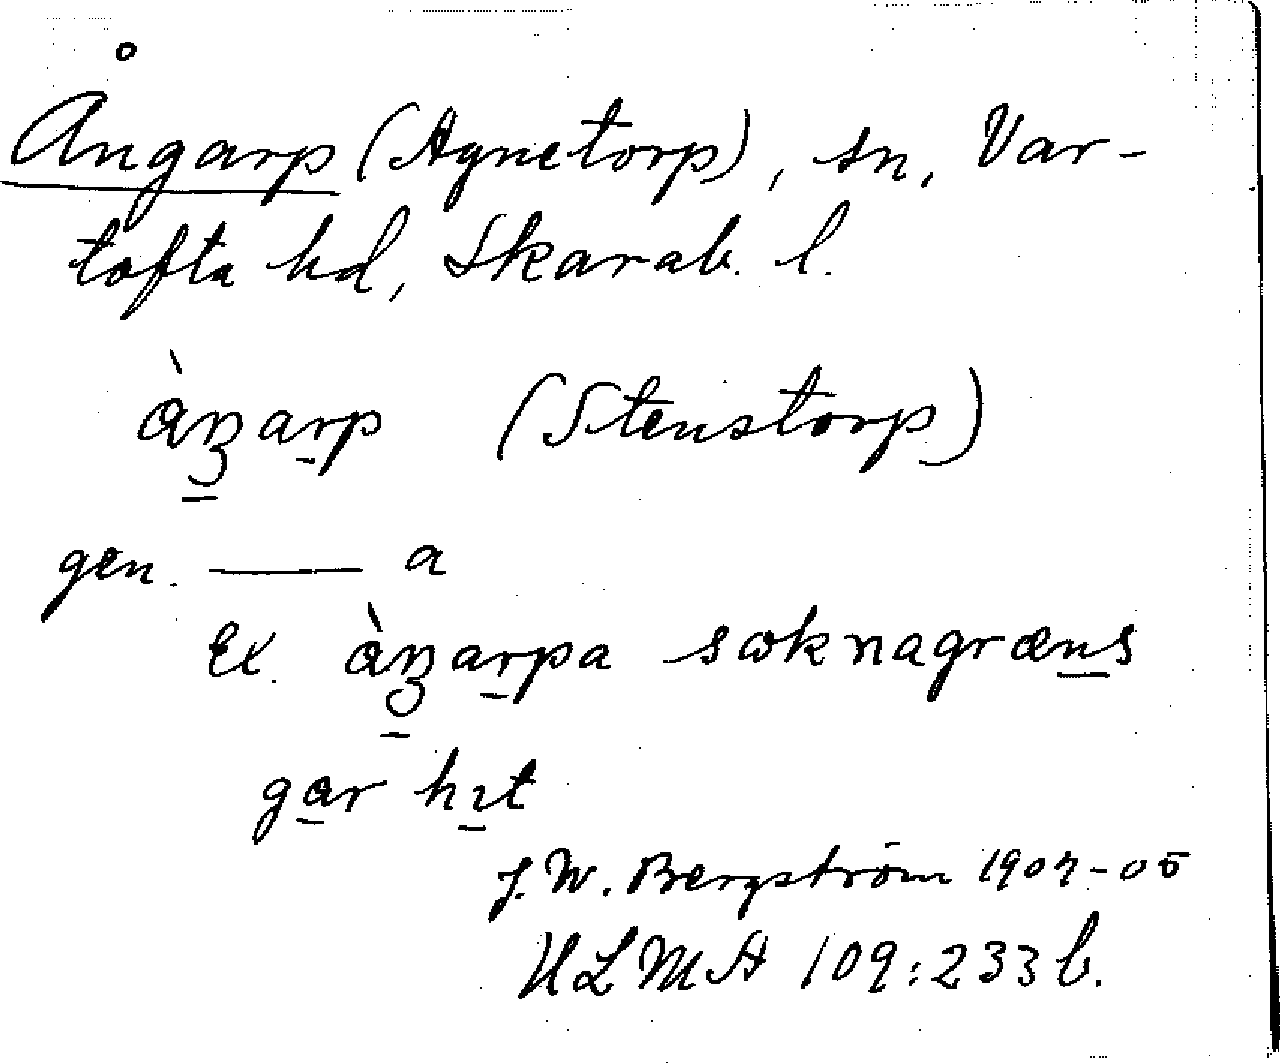 Ångarp (Agnetorp), sn, Var-
tofta hd, Skarab. l.
àŋarp (Stenstorp)
gen. —— a
Ex. àŋarpa sωknagræns
gar hɪt
J. W. Bergström 1904-05
ULMA 109:233 b.